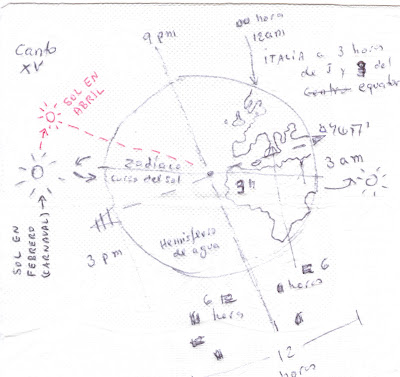 Canto
XV
9 pm
hora
12 am
ITALIA a 3 horas
de J y 9 del
equator
SOL EN
ABRIL
Zodíaco
curso del sol
3 am
3h
SOL EN
FEBRERO
(CARNAVAL)
3 pm
Hemisferio
de agua
6
horas
6
horas
6
12
horas